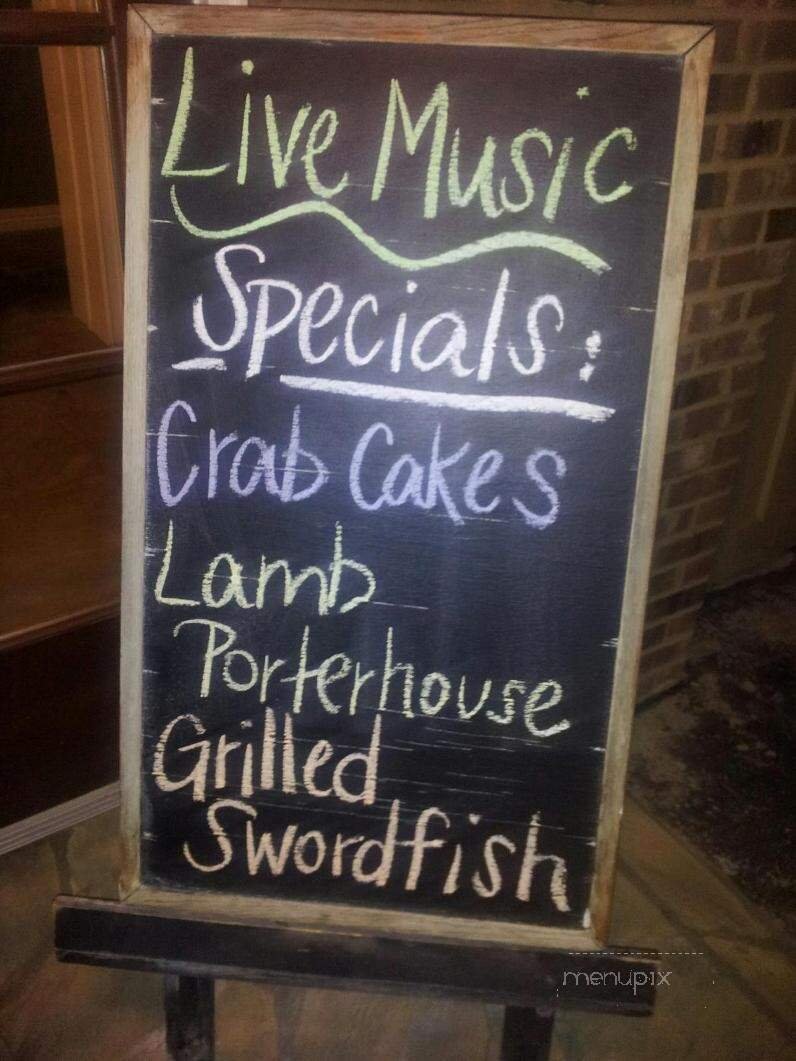 Live Music
Specials:
Crab Cakes
Lamb
Porterhouse
Grilled
Swordfish
menupix